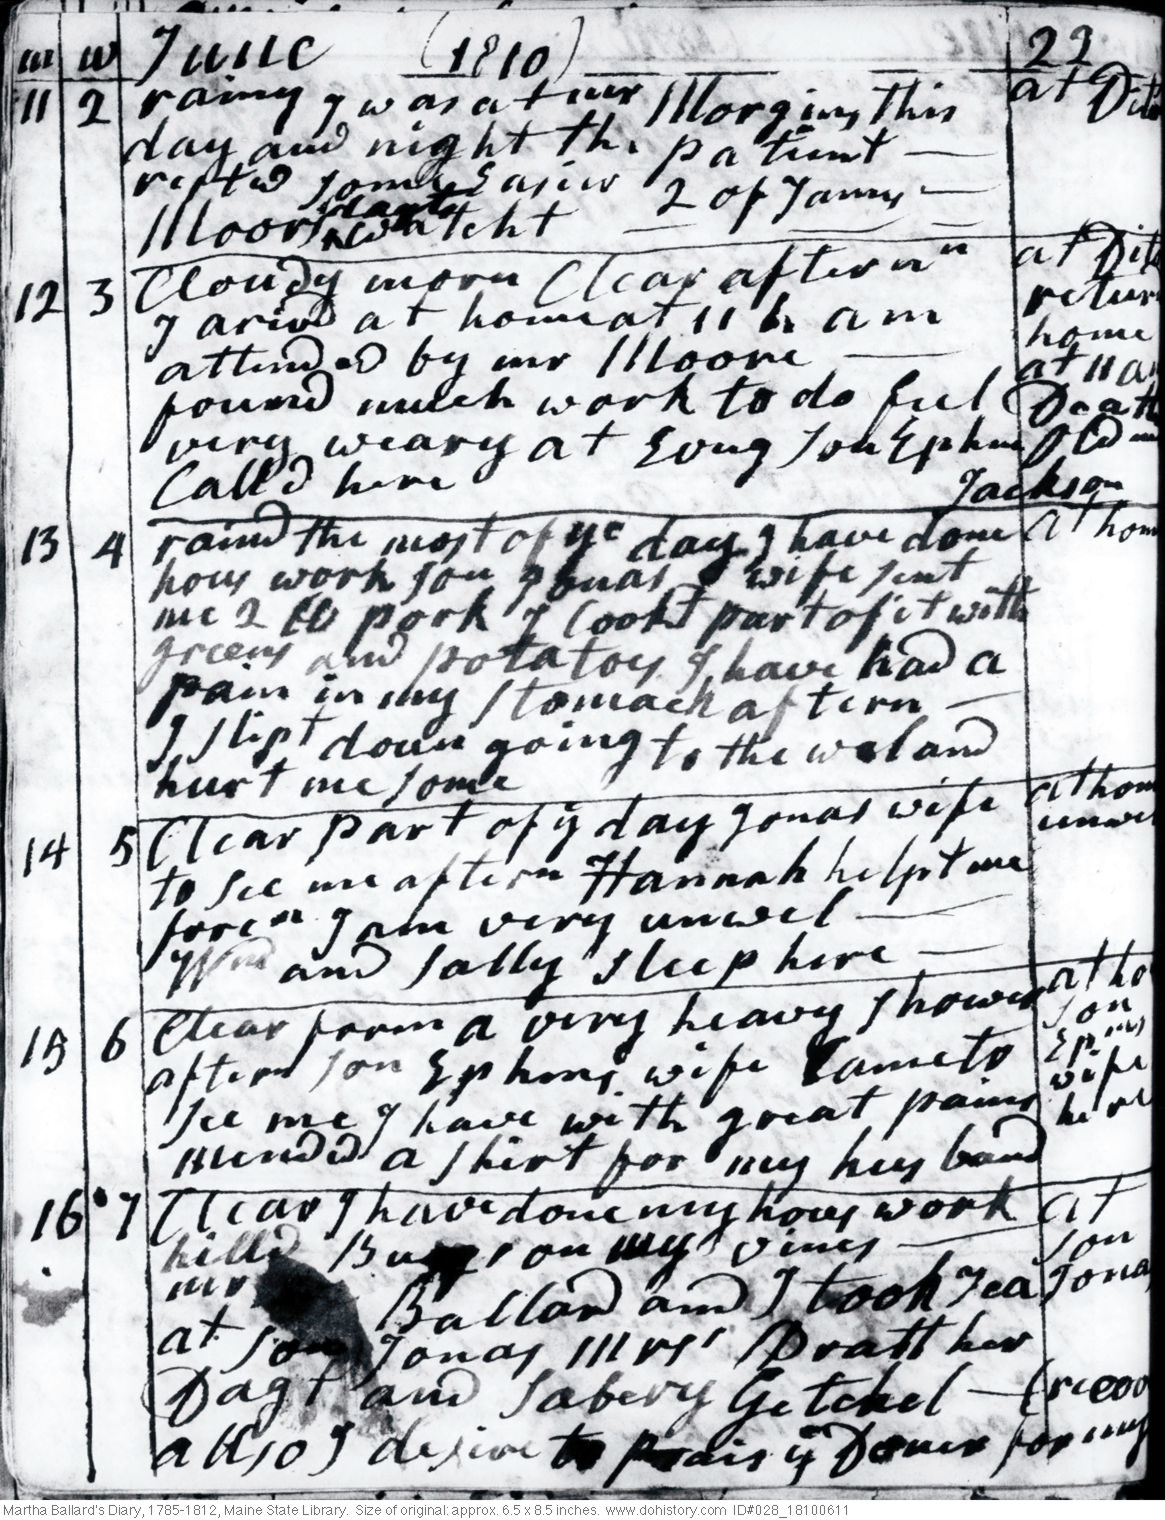 m w June (1810) 22
11 2 rainy I was at mr Morgins this at Dit
day and night the patient
rested some Easier 2 of James
Moors dagts watcht
12 3 Cloudy morn Clear aftern n at Dit
I arivd at home at 11 h am return
attended by mr Moore home
found much work to do feel at 11 am
very weary at Evng son Ephm Death
Calld here old
Jackson
13 4 raind the most of ye day I have done at hom
hous work son Jonas s wife sent
me 2 lb pork I Cookt part of it with
greens and potatoes I have had a
pain in my stomach aftern
I slipt down going to the wel and
hurt me some
14 5 Clear part of y day Jonas wife at hom
to see me aftern Hannah helpt me unwel
foren I am very unwel
Wm and Sally sleep here
15 6 Clear foren a very heavy shower at ho
aftern son Ephms wife Came to son
see me I have with great pains Ephms
mended a shirt for my husband wife
here
16 7 Clear I have done my hous work at
killd Bugs on my vines son
mr Ballard and I took Tea Jonas
at son Jonas Mrs Pratt her
Dagt and Sabery Getchel (recov
allso I desire to prais ye Doner for my
Martha Ballard's Diary, 1785-1812, Maine State Library. Size of original: approx. 6.5 x 8.5 inches. www.dohistory.com ID#028_18100611